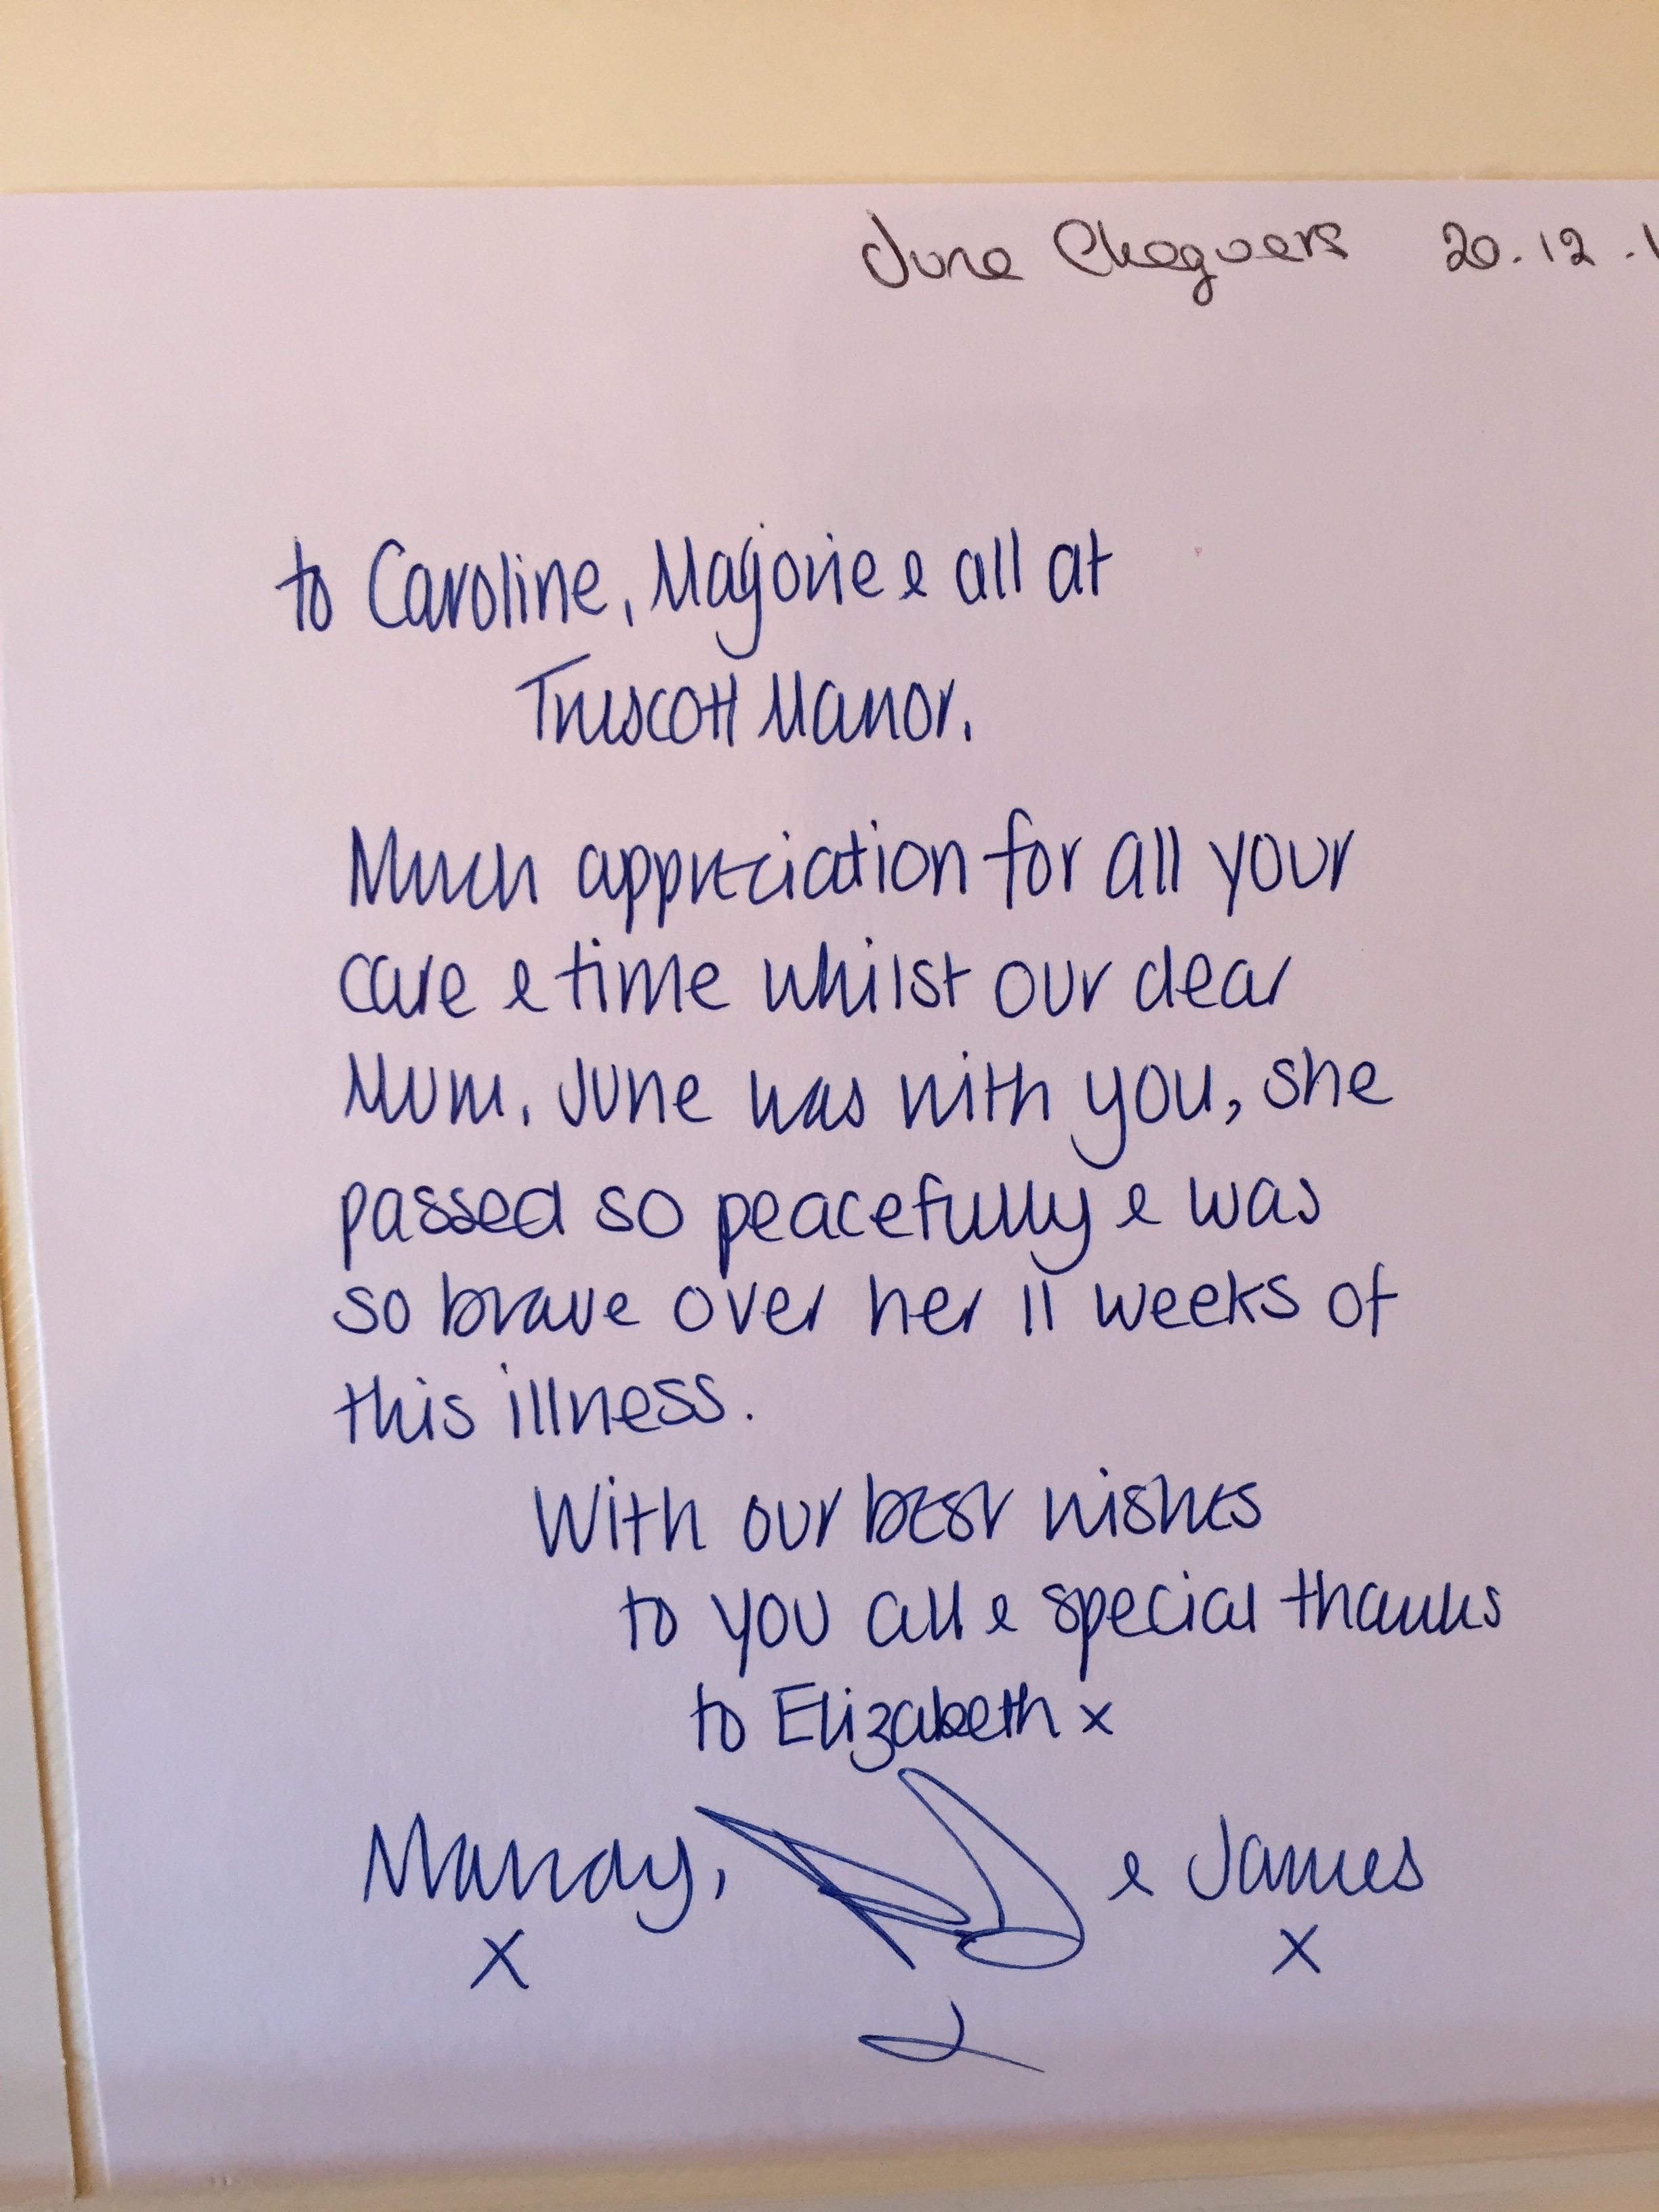 June Chequers 20.12.1
to Caroline, Marjorie & all at
Truscott Manor.
Much appreciation for all your
care & time whilst our dear
Mum, June was with you, she
passed so peacefully & was
so brave over her 11 weeks of
this illness.
With our best wishes
to you all & special thanks
to Elizabeth x
Mandy, & James
x x